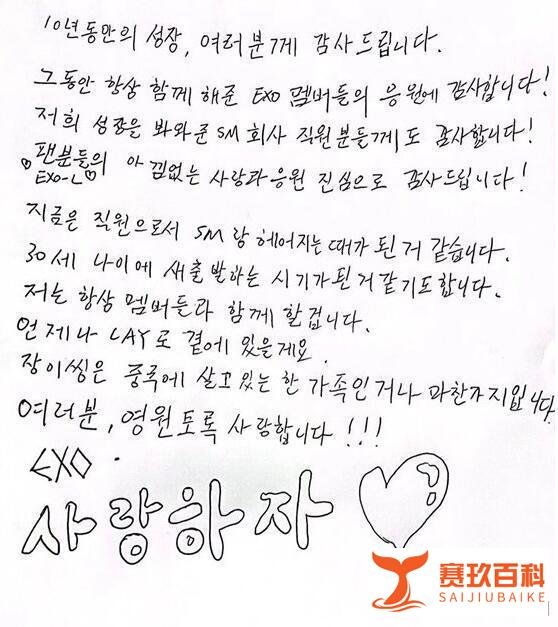 10년동안의 성장, 여러분께 감사드립니다.
그동안 항상 함께 해준 EXO 멤버들의 응원에 감사합니다!
저희 성장을 봐와준 SM 회사 직원분들께도 감사합니다!
♡팬분들의 아낌없는 사랑과 응원 진심으로 감사드립니다!
EXO-L♡
지금은 직원으로서 SM랑 헤어지는 때가 된 거 같습니다.
30세 나이에 새출발하는 시기가 된거 같기도 합니다.
저는 항상 멤버들과 함께 할겁니다.
언제나 LAY로 곁에 있을게요.
장이씽은 중국에 살고 있는 한 가족인거나 마찬가지입니다
여러분, 영원토록 사랑합니다!!!
EXO.
사랑하자 ♡
赛玖百科
SAIJIUBAIKE